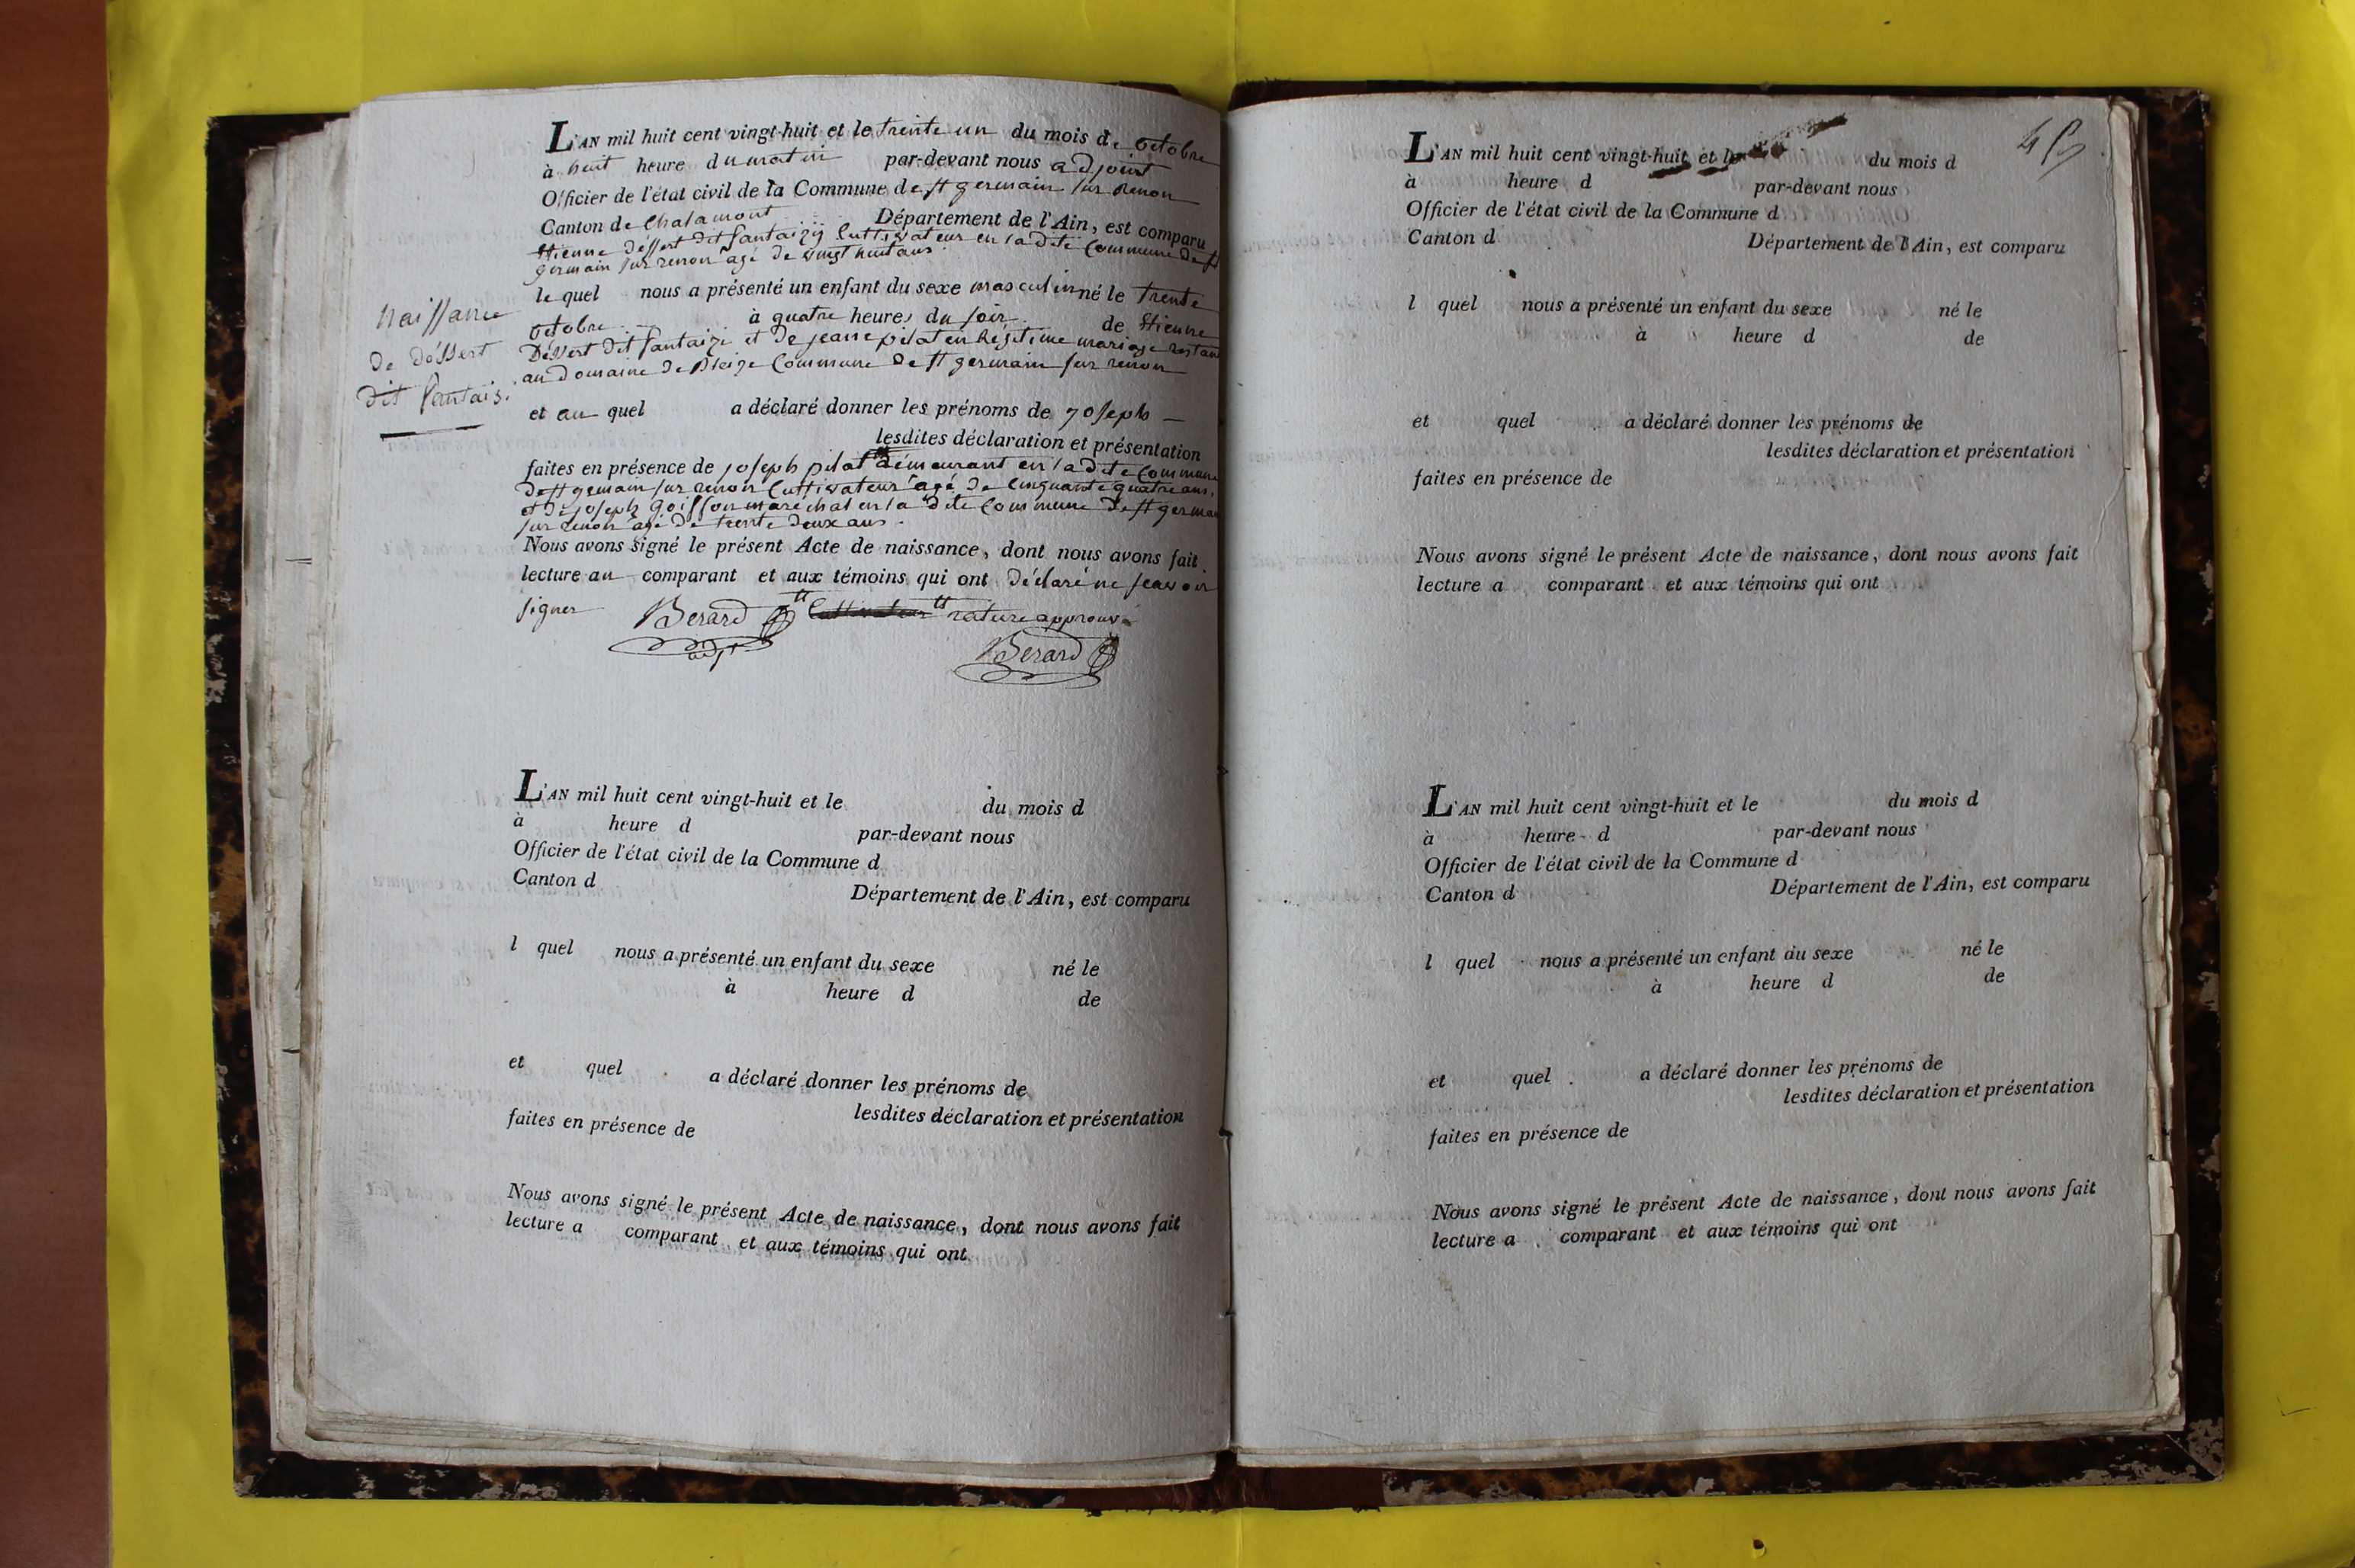 L'AN mil huit cent vingt-huit et le trente un du mois de octobre
à huit heure du matin par-devant nous adjoint
Officier de l'état civil de la Commune de st germain sur Renon
Canton de Chalamont Département de l'Ain, est comparu
Etienne déssert dit fantaizij Cultivateur en la dite Commune de st
germain sur renon agé de vingt huit ans
le quel nous a présenté un enfant du sexe masculin né le trente
octobre à quatre heures du soir de Etienne
Déssert dit fantaizi et de jeanne pilat en légitime mariage restant
au domaine de Commune de st germain sur renon
et au quel a déclaré donner les prénoms de joseph
lesdites déclaration et présentation
faites en présence de joseph pilat demeurant en la dite Commune
de st germain sur renon Cultivateur agé de Cinquante quatre ans,
et de joseph Goiffon maréchal en la dite Commune de st germain
sur renon agé de trente deux ans.
Nous avons signé le présent Acte de naissance, dont nous avons fait
lecture au comparant et aux témoins qui ont déclaré ne scavoir
signer Berard rature approuvé
adjt Berard
naissance
de déssert
dit fantaisi
L'AN mil huit cent vingt-huit et le du mois d
à heure d par-devant nous
Officier de l'état civil de la Commune d
Canton d Département de l'Ain, est comparu
l quel nous a présenté un enfant du sexe né le
à heure d de
et quel a déclaré donner les prénoms de
lesdites déclaration et présentation
faites en présence de
Nous avons signé le présent Acte de naissance, dont nous avons fait
lecture a comparant et aux témoins qui ont
L'AN mil huit cent vingt-huit et le du mois d
à heure d par-devant nous
Officier de l'état civil de la Commune d
Canton d Département de l'Ain, est comparu
l quel nous a présenté un enfant du sexe né le
à heure d de
et quel a déclaré donner les prénoms de
lesdites déclaration et présentation
faites en présence de
Nous avons signé le présent Acte de naissance, dont nous avons fait
lecture a comparant et aux témoins qui ont
L'AN mil huit cent vingt-huit et le du mois d
à heure d par-devant nous
Officier de l'état civil de la Commune d
Canton d Département de l'Ain, est comparu
l quel nous a présenté un enfant du sexe né le
à heure d de
et quel a déclaré donner les prénoms de
lesdites déclaration et présentation
faites en présence de
Nous avons signé le présent Acte de naissance, dont nous avons fait
lecture a comparant et aux témoins qui ont